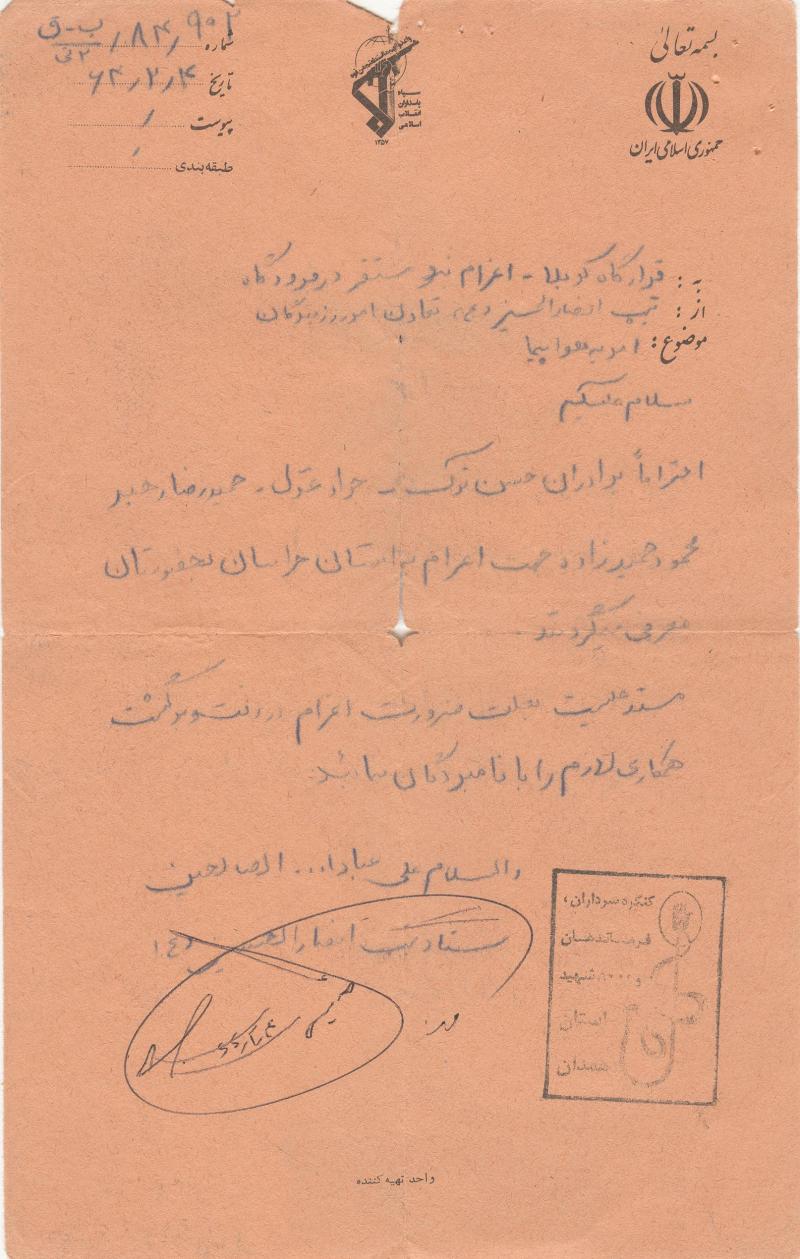 بسمه تعالی
جمهوری اسلامی ایران
سپاه
پاسداران
انقلاب
اسلامی
۱۳۵۷
شماره ۹۰۲/۸۴/ب-ق
تاریخ ۶۴/۲/۴
پیوست
طبقه بندی
به : قرارگاه کربلا - اعزام نیرو مستقر در فرودگاه
از : تیپ انصارالحسین (ع) تعاون امور رزمندگان
موضوع : امریه هواپیما
سلام علیکم
احتراماً برادران حسن ترک - جواد - حمیدرضا
محمود حمیدزاده جهت اعزام به استان خراسان بحضورتان
معرفی میگردند
بعلت ضرورت اعزام در رفت و برگشت
همکاری لازم را با نامبردگان بنمائید.
والسلام علی عبادا... الصالحین
ستاد تیپ انصارالحسین (ع)
کنگره سرداران،
فرماندهان
و ۸۰۰۰ شهید
استان
همدان
واحد تهیه کننده